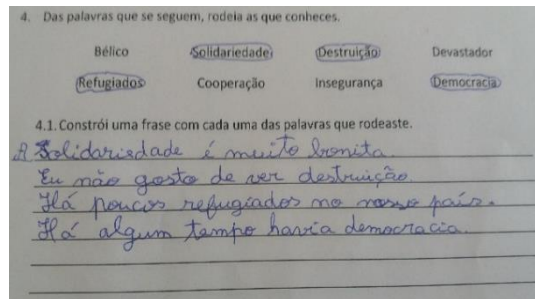 4. Das palavras que se seguem, rodeia as que conheces.
Bélico Solidariedade Destruição Devastador
Refugiados Cooperação Insegurança Democracia
4.1. Constrói uma frase com cada uma das palavras que rodeaste.
A Solidariedade é muito bonita.
Eu não gosto de ver destruição.
Há poucos refugiados no nosso país.
Há algum tempo havia democracia.